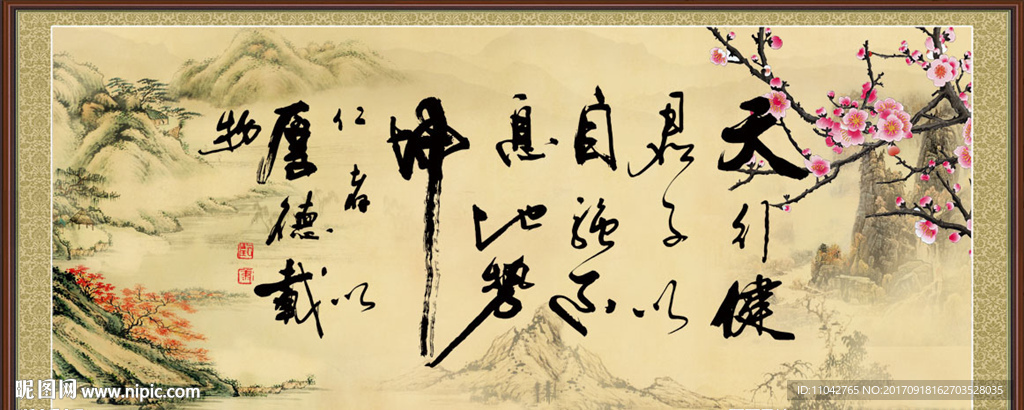 天行健
君子以
自强不
息地势
坤
仁者以
厚德载
物
昵图网 www.nipic.com
ID:11042765 NO:20170918162703528035